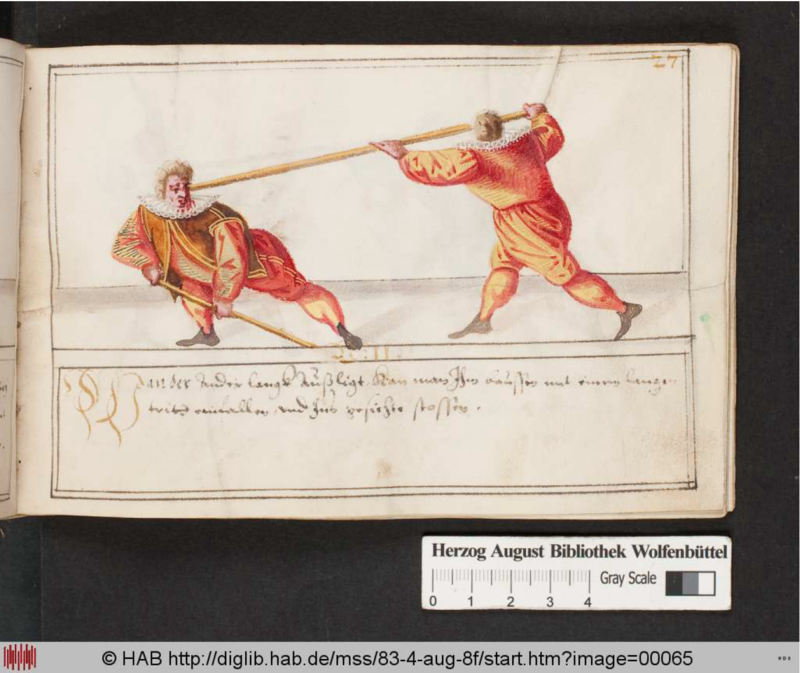 27
Wan der Ander langk Außligt. Kan man Ihm daussen mit einem langen
tritt einfallen und Ins gesichte stossen.
Herzog August Bibliothek Wolfenbüttel
Gray Scale
0 1 2 3 4
© HAB http://diglib.hab.de/mss/83-4-aug-8f/start.htm?image=00065